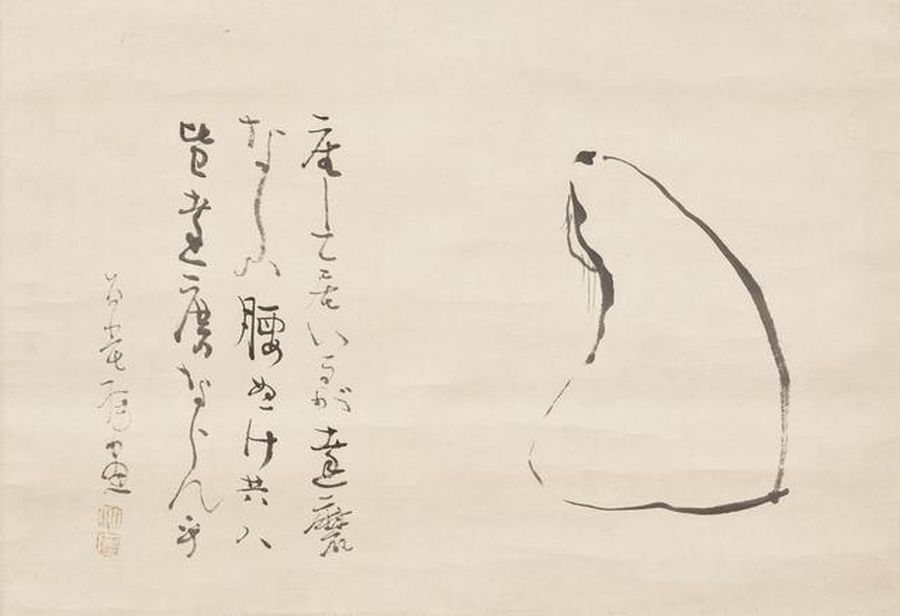 座して居いるが達磨
ならハ腰ぬけ共ハ
皆達磨ならん乎
画